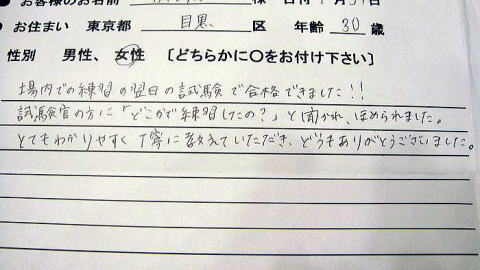 ● お客様のお名前
● お住まい 東京都 目黒 区 年齢 30 歳
性別 男性、女性 〔どちらかに〇をお付け下さい〕
場内での練習の翌日の試験で合格できました!!
試験官の方に「どこかで練習したの?」と聞かれ、ほめられました。
とてもわかりやすく丁寧に教えていただき、どうもありがとうございました。